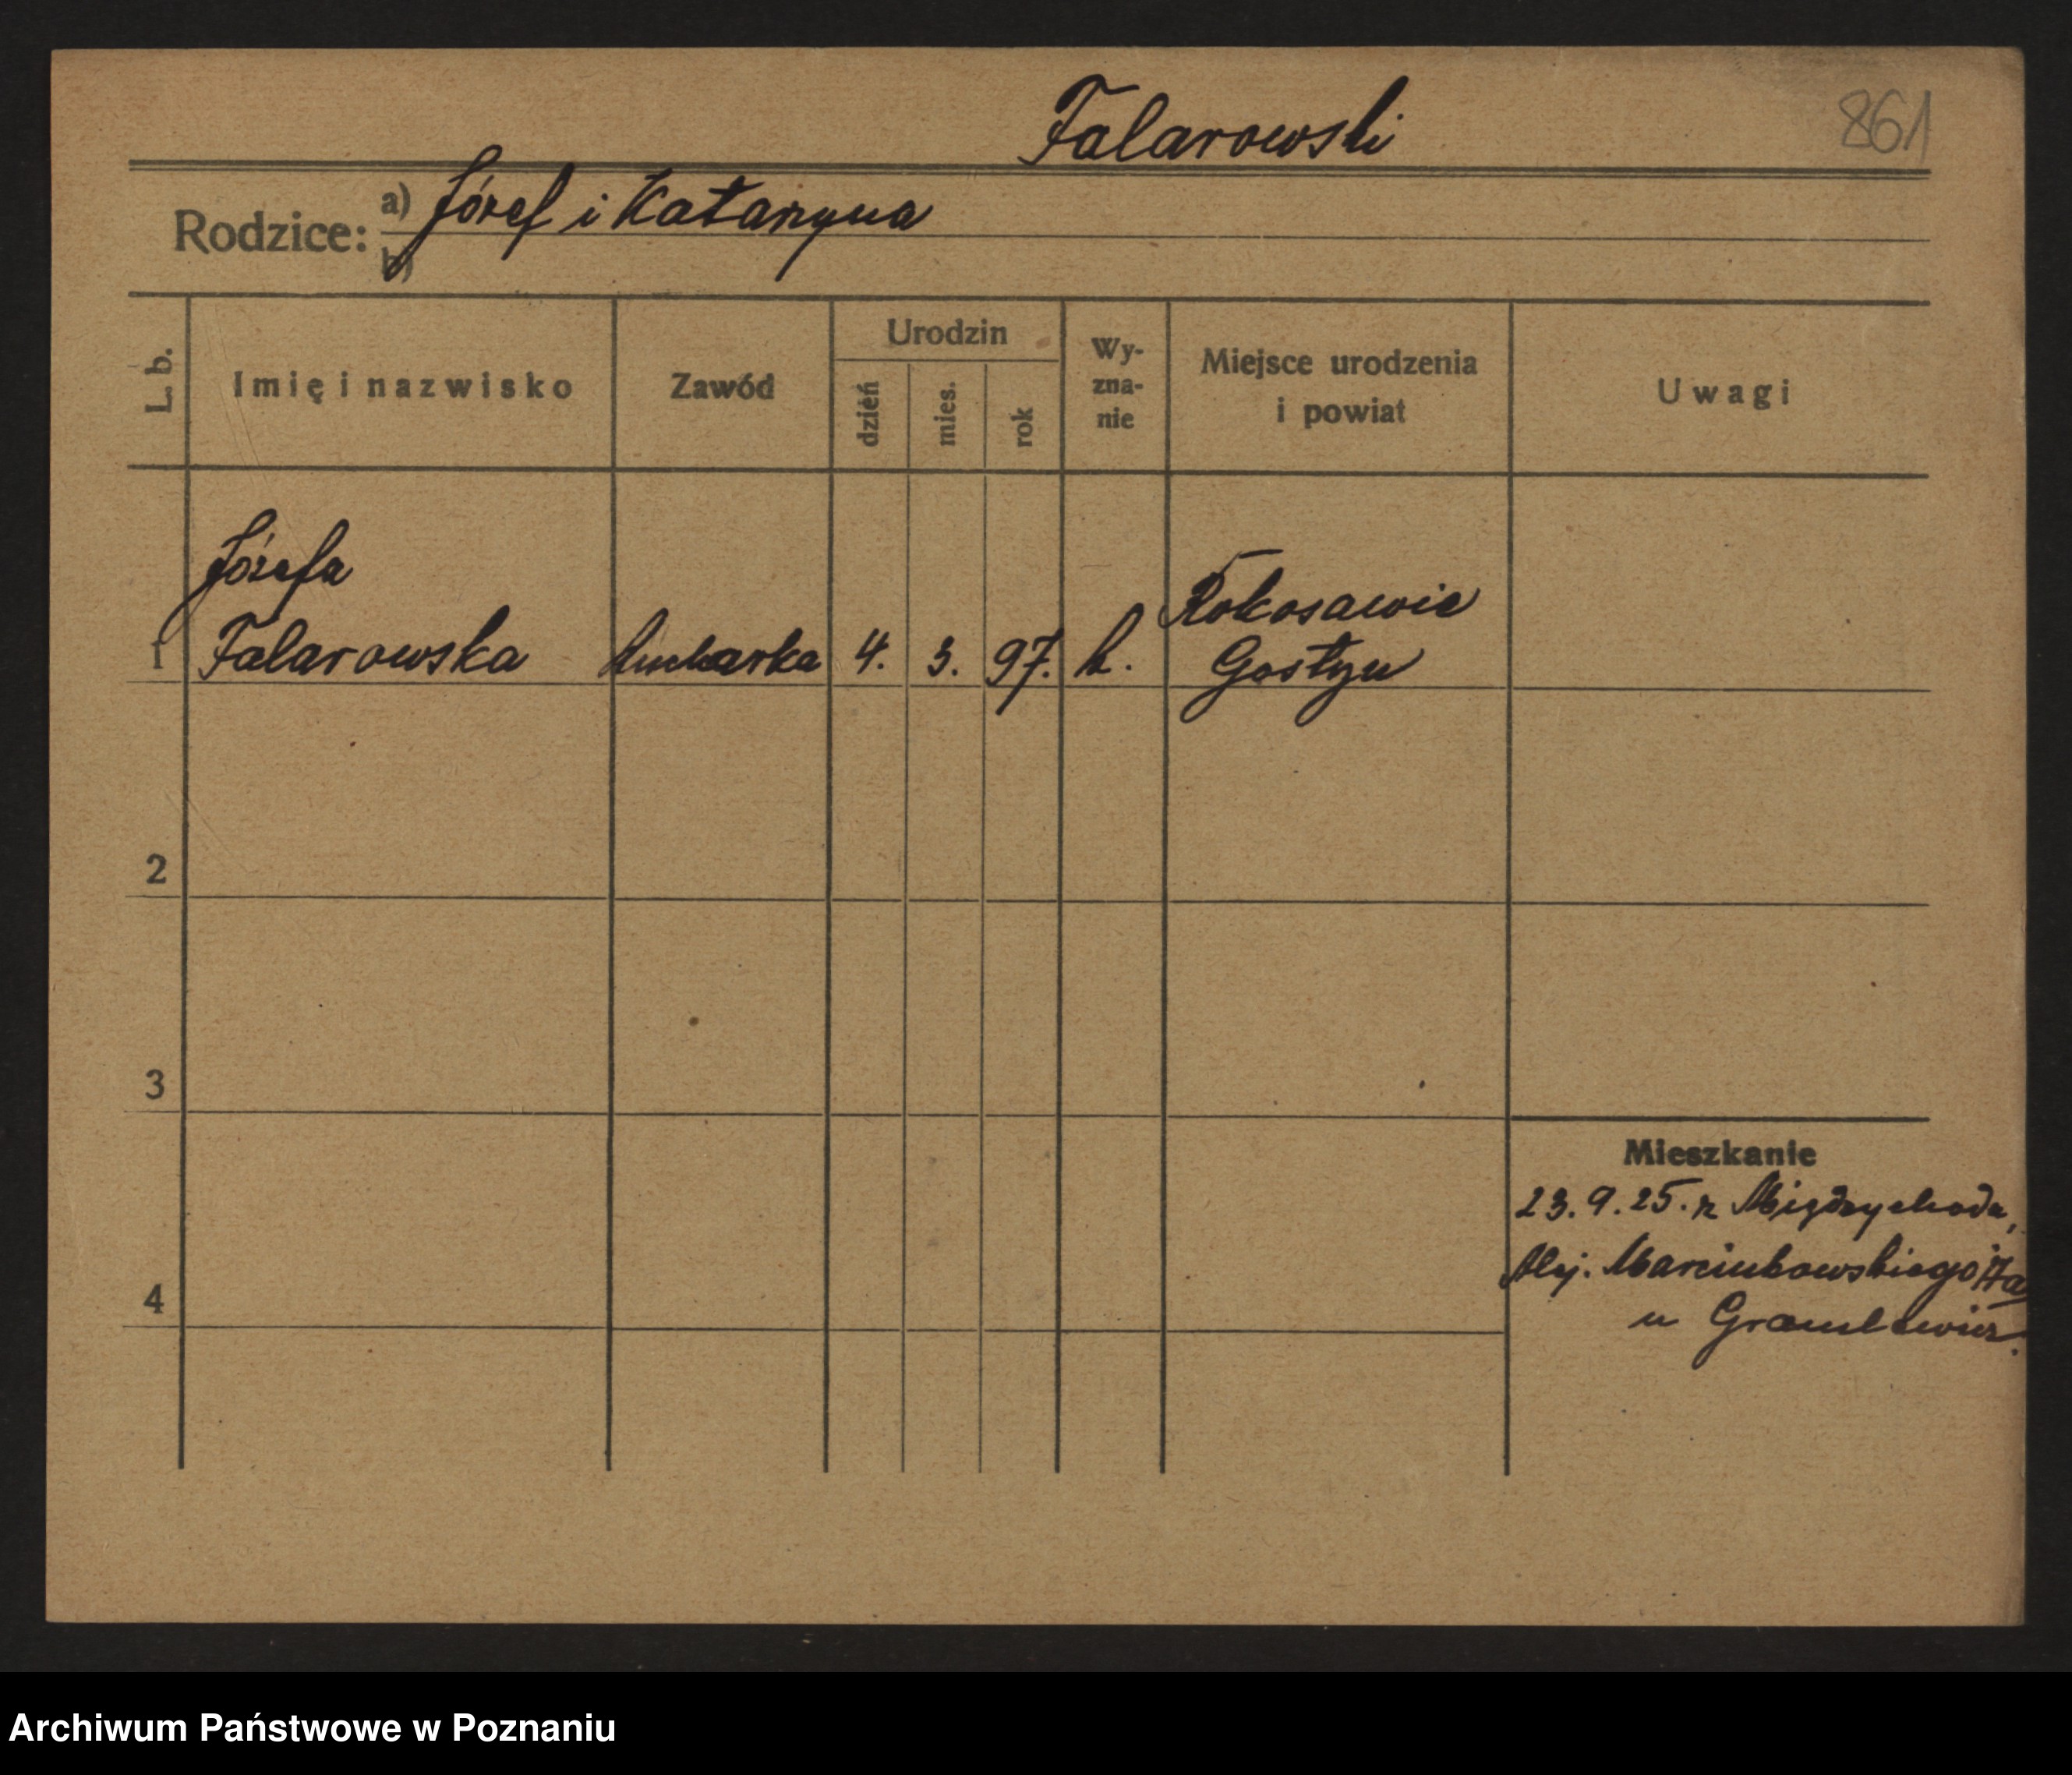 Falarowski
861
Rodzice:
a) Józef i Katarzyna
b)
L. b.
Imię i nazwisko
Zawód
Urodzin
dzień
mies.
rok
Wy-
zna-
nie
Miejsce urodzenia
i powiat
Uwagi
Józefa
1 Falarowska kucharka 4. 3. 97. k.
Rokosawie
Gostyn
2
3
4
Mieszkanie
23. 9. 25. z Międzychoda,
Alej. Marcinkowskiego 17a
u
Archiwum Państwowe w Poznaniu